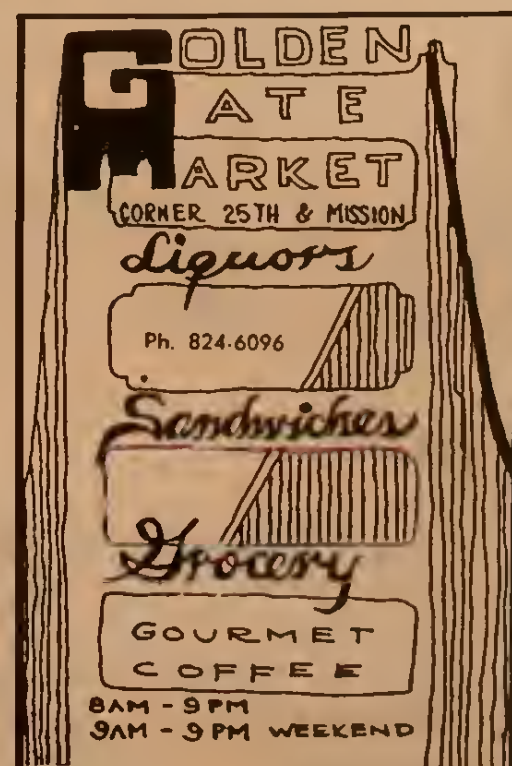 GOLDEN
GATE
MARKET
CORNER 25TH & MISSION
Liquors
Ph. 824-6096
Sandwiches
Grocery
GOURMET
COFFEE
8AM - 9PM
9AM - 9PM WEEKEND